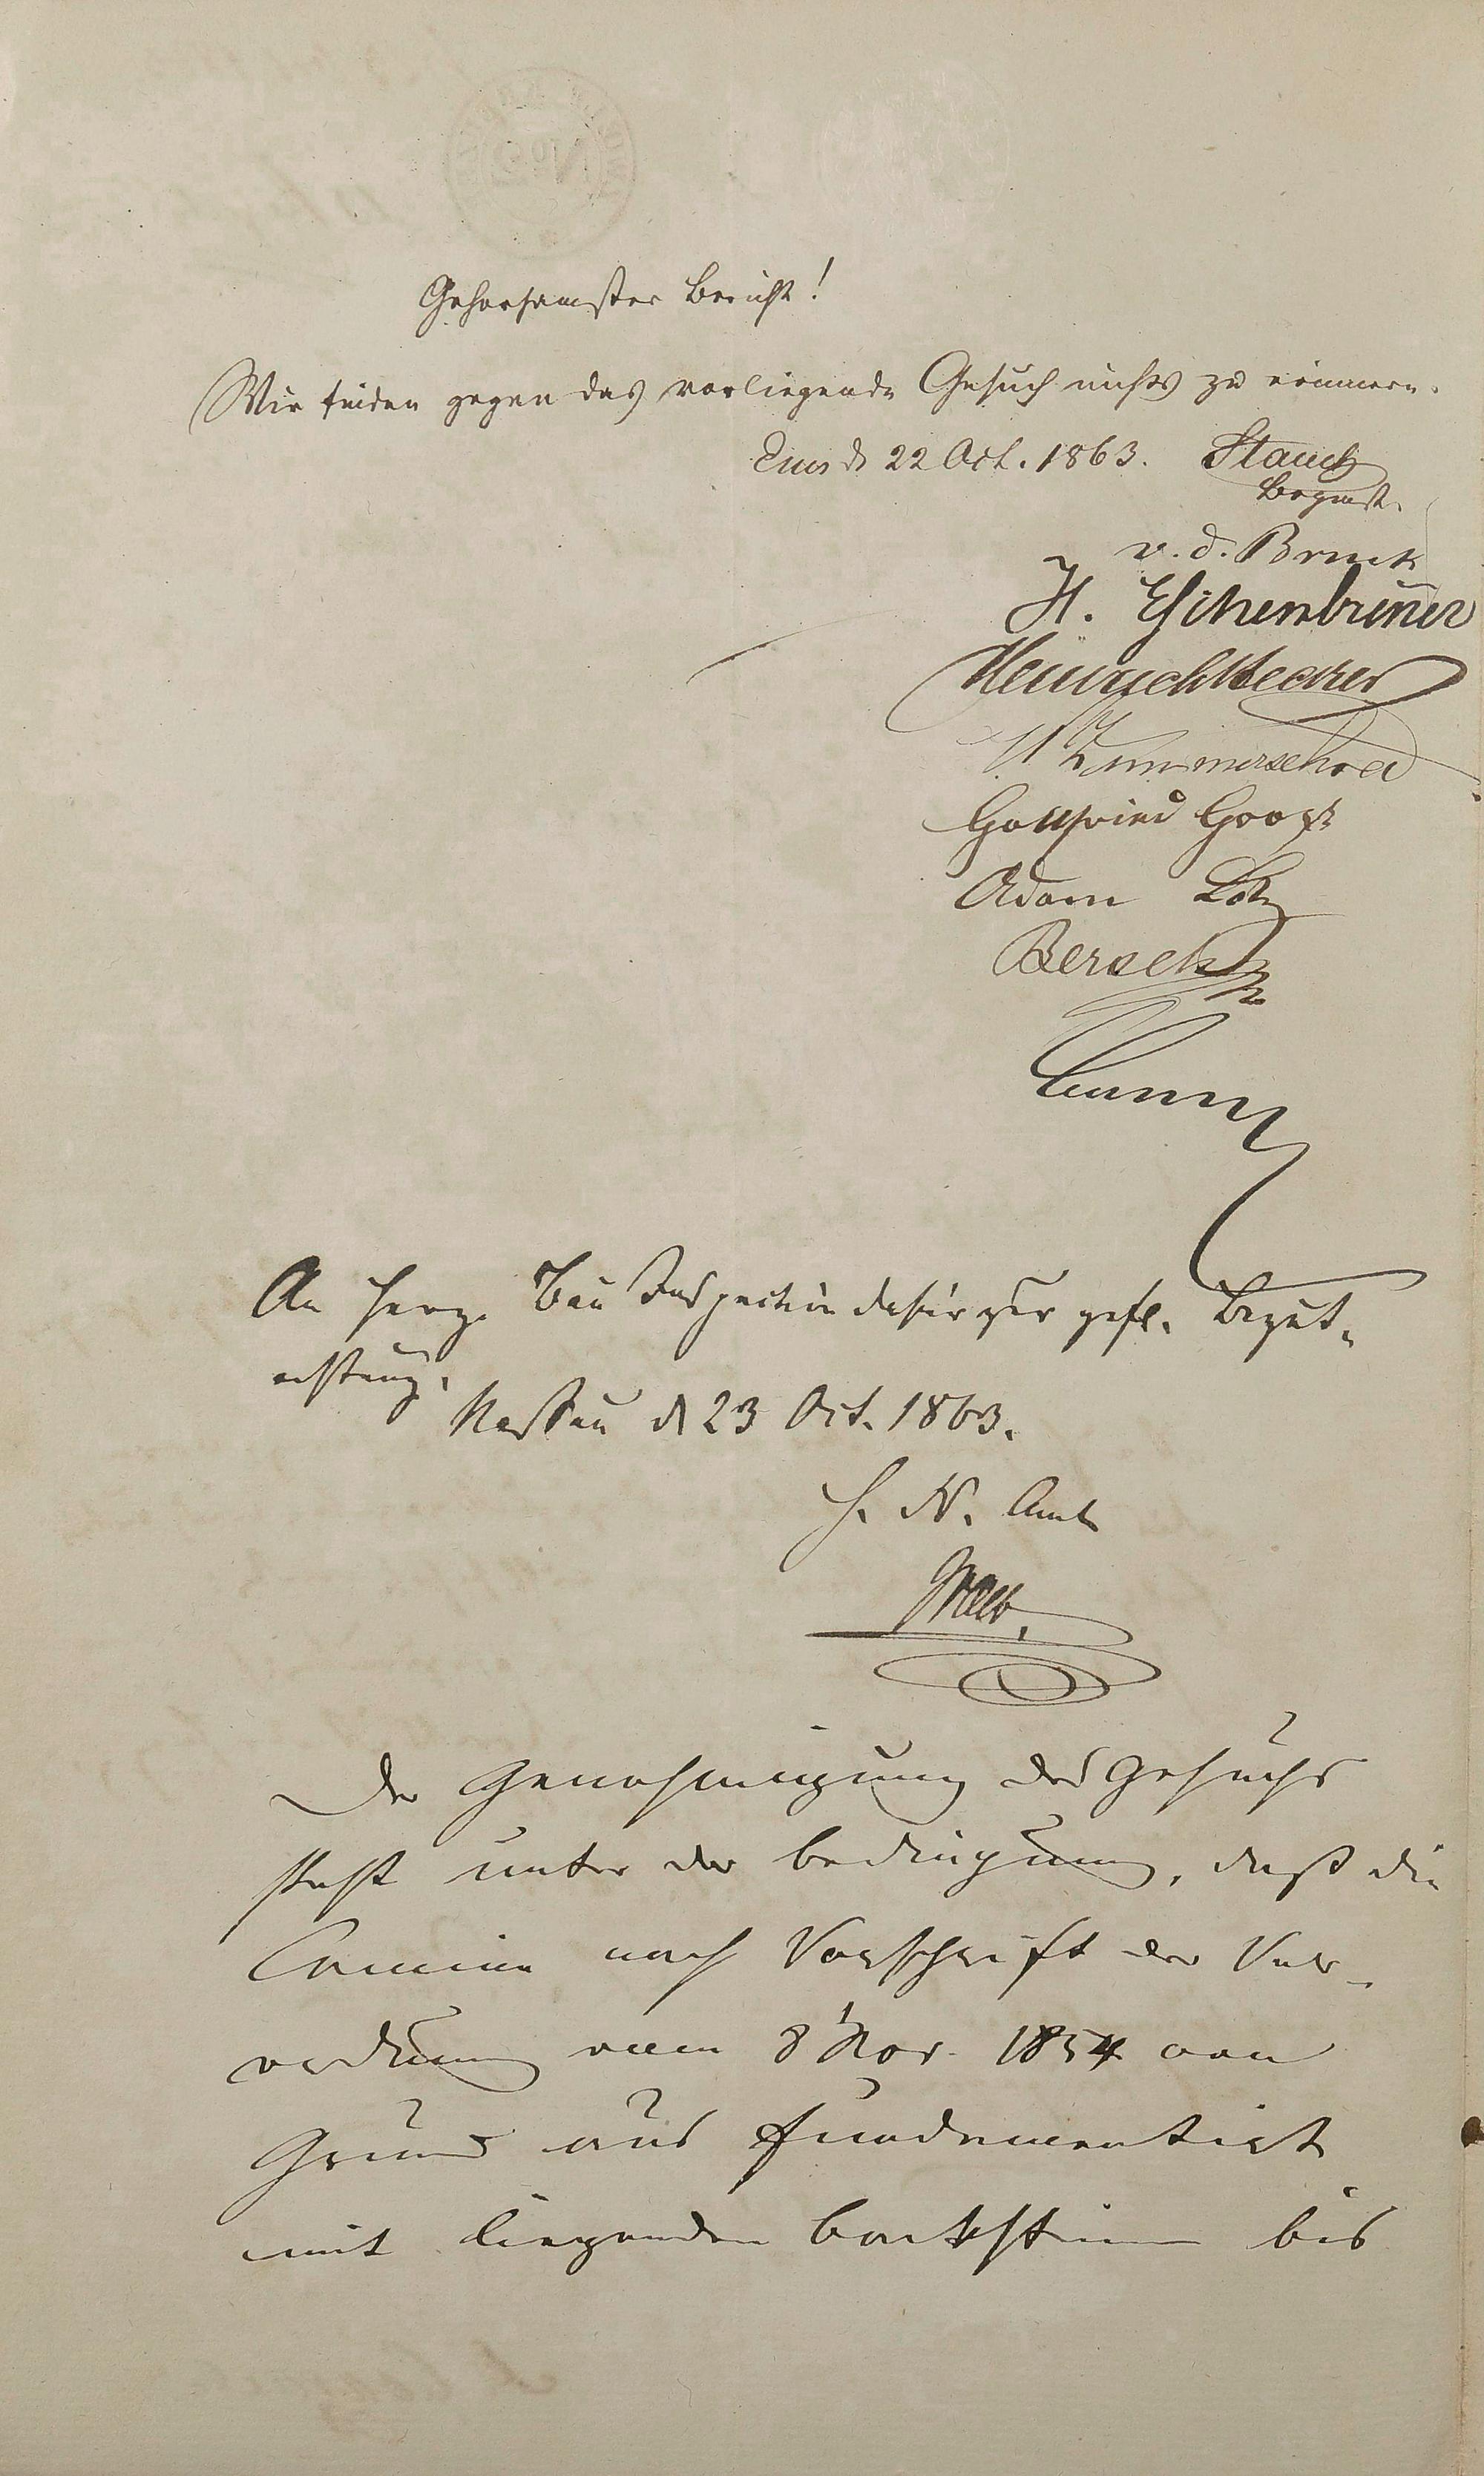 Gehorsamster Bericht!
Wir finden gegen das vorliegende Gesuch nichts zu erinnern.
Ems d 22 Oct. 1863. Stauch
Bergmstr.
v. d. Bruck
H. Eschenbrenner
Heinrich Becker
H Zimmerschied
Gottfried
Adam Lotz
Bersch
An Herzgl. Bau Inspection dahier zur gefl. Begut-
achtung.
Nassau d 23 Oct. 1863.
H. N. Amt
Der Genehmigung des Gesuchs
steht unter der Bedingung, daß die
Camine nach Vorschrift der Ver-
ordnung vom 8 Nov. 1854 von
Grund aus fundamentirt
mit liegenden Backsteinen bis